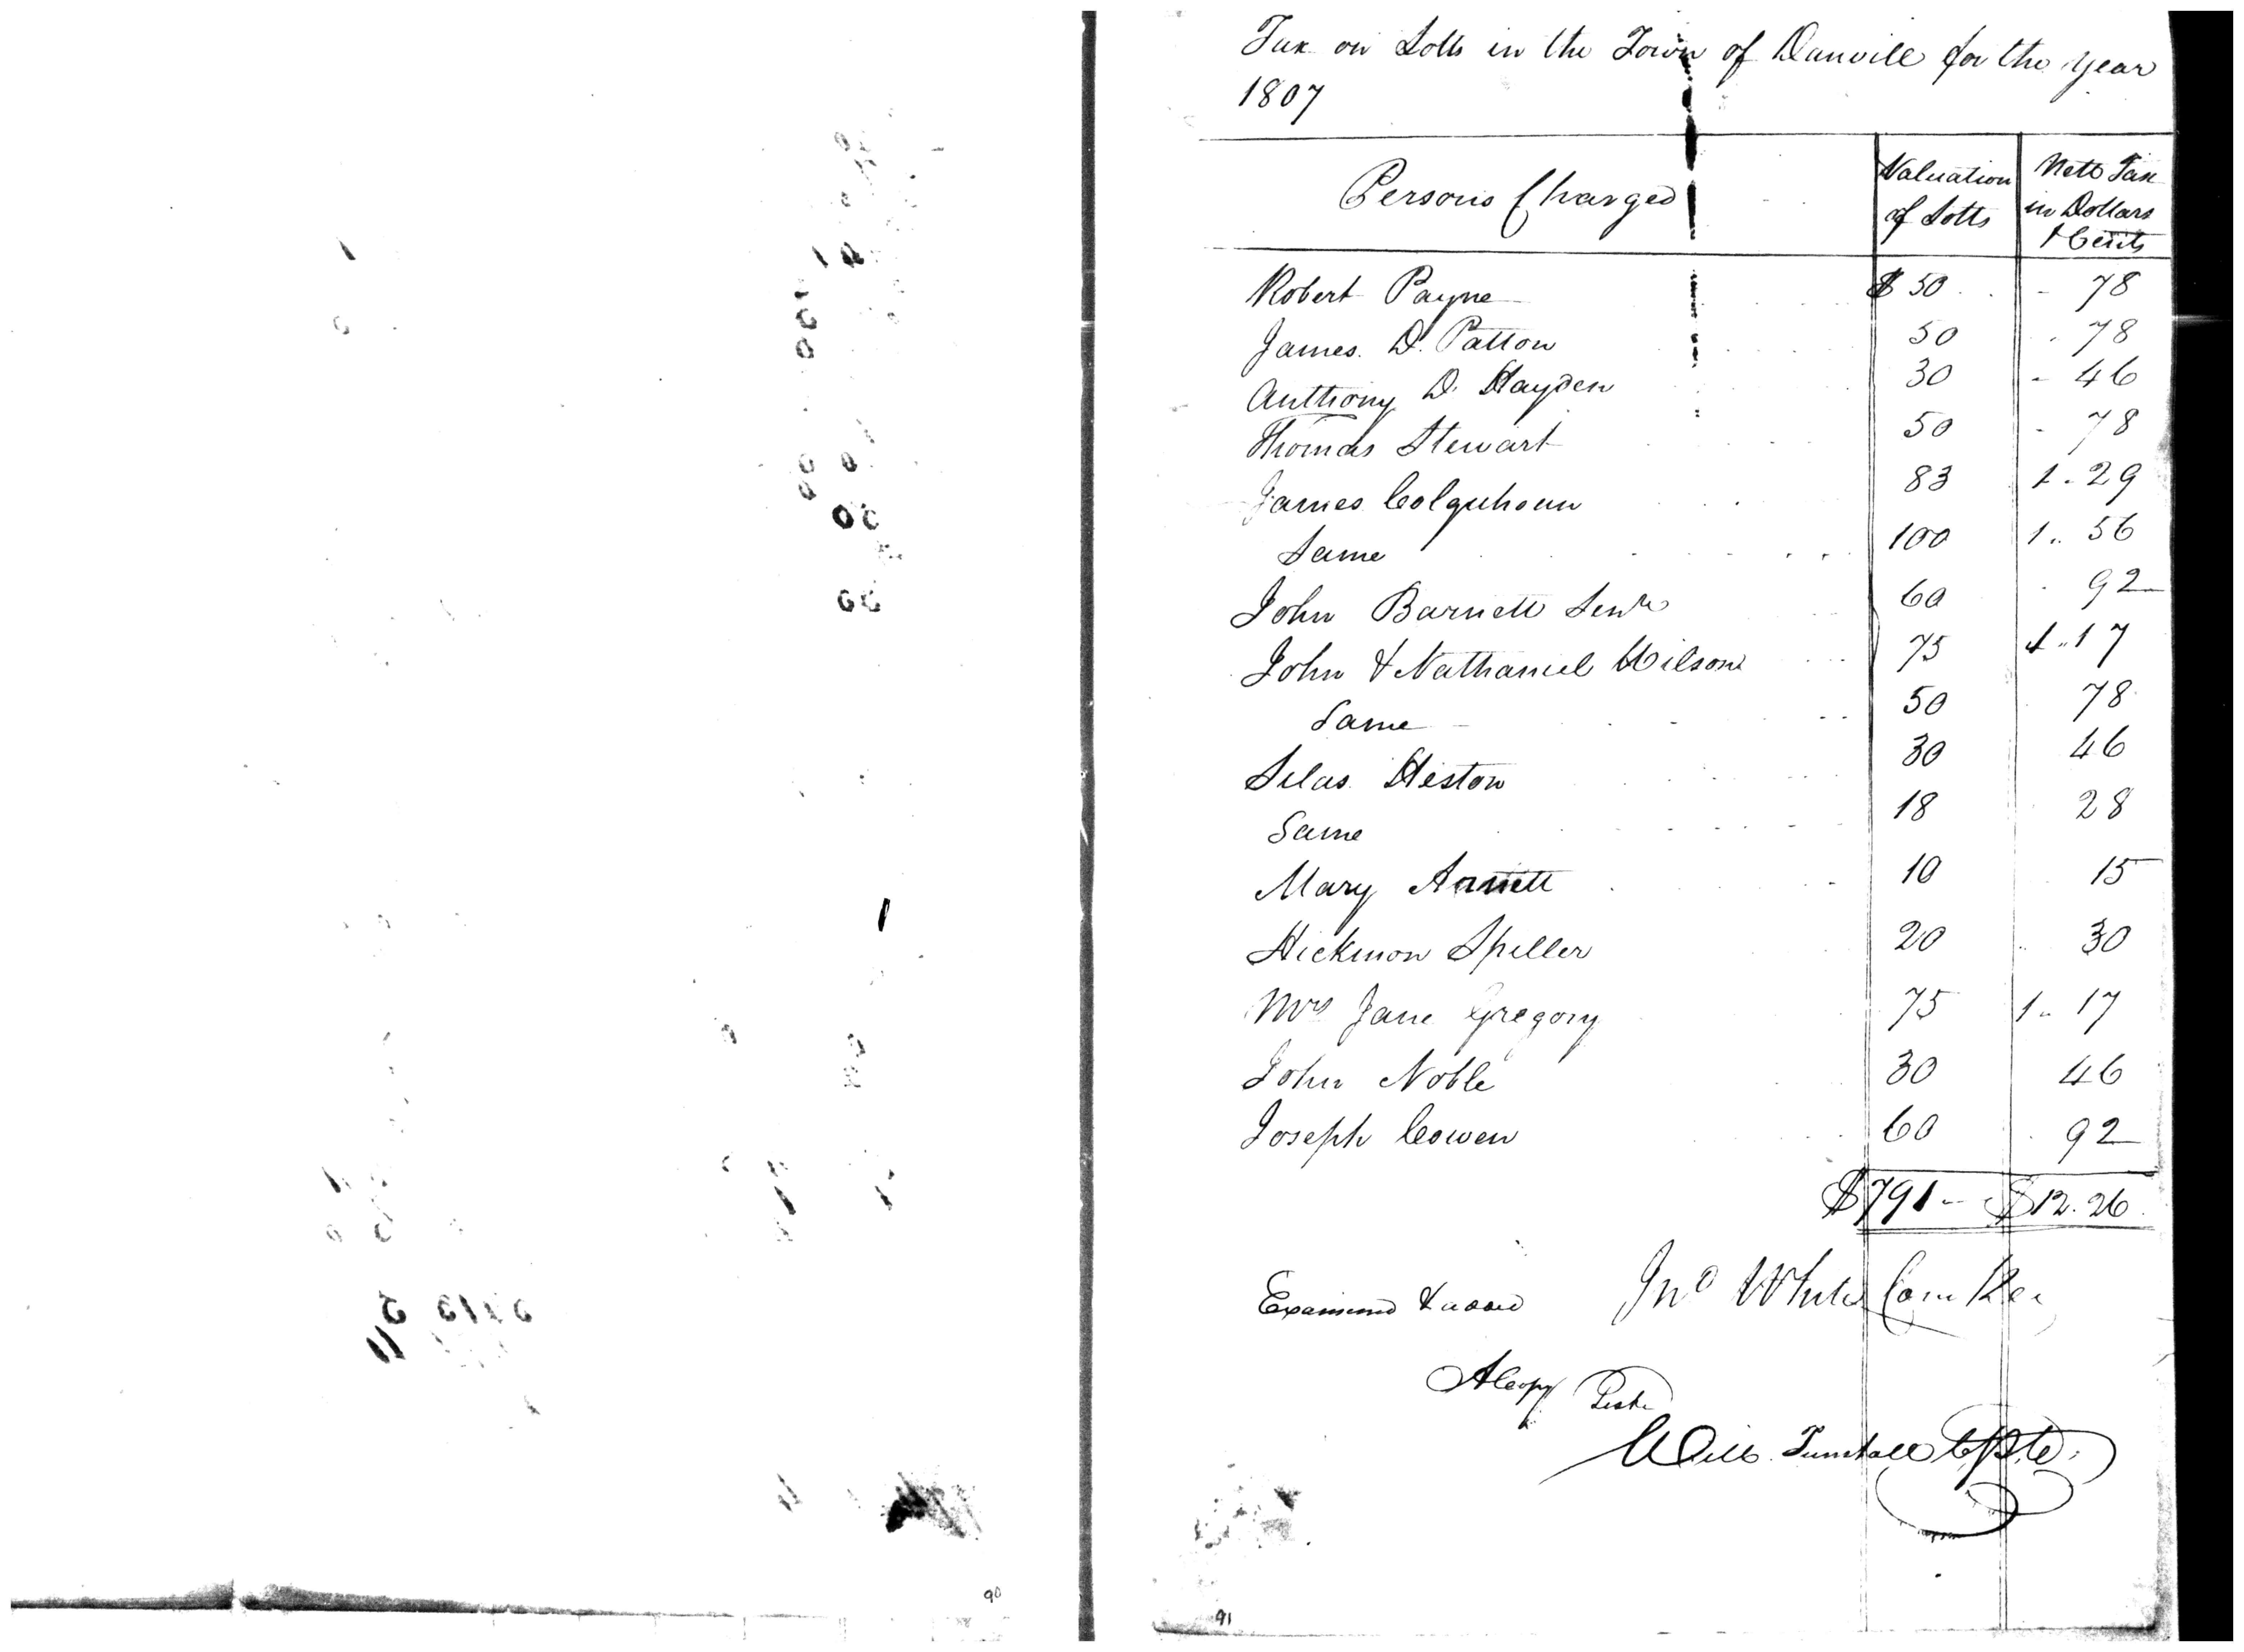 Tax on Lotts in the Town of Danvill for the year
1807
Persons Charged
Valuation of Lotts
Nett Tax in Dollars & Cents
Robert Payne $ 50 78
James D. Patton 50 78
Anthony D. Hayden 30 - 46
Thomas Stewart 50 - 78
James Colquhoun 83 1 - 29
Same 100 1 .. 56
John Barnett Senr 60 92
John & Nathaniel Wilson 75 1 .. 17
Same 50 78
Silas Heston 30 46
Same 18 28
Mary Arnett 10 15
Hickmon Spiller 20 30
Mrs Jane Gregory 75 1 .. 17
John Noble 30 46
Joseph Cowen 60 92
$791 - $12.26
Examined &
Jno White Com Rev
A Copy Teste
Will Tunstall CPC
90
91